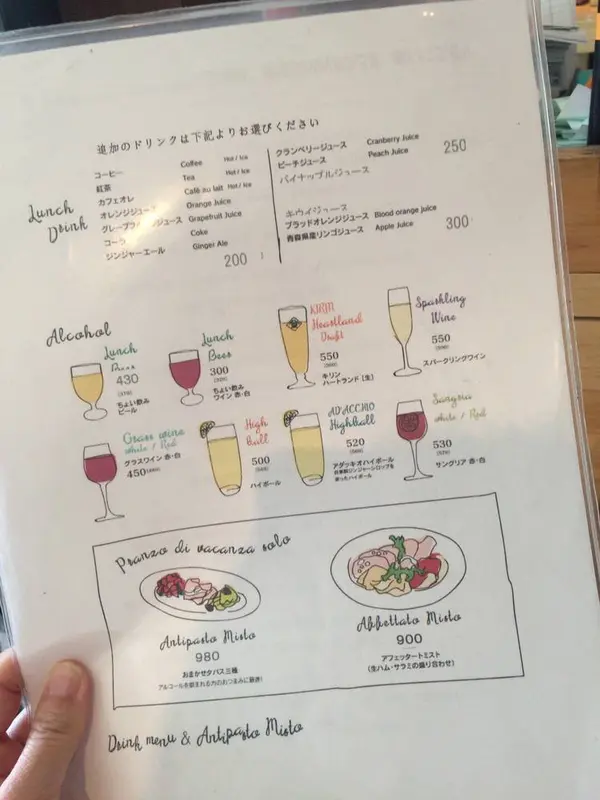 追加のドリンクは下記よりお選びください
Lunch
Drink
コーヒー Coffee Hot / Ice
紅茶 Tea Hot / Ice
カフェオレ Café au lait Hot / Ice
オレンジジュース Orange Juice
グレープフルーツジュース Grapefruit Juice
コーラ Coke
ジンジャーエール Ginger Ale
200
クランベリージュース Cranberry Juice
ピーチジュース Peach Juice
250
パイナップルジュース
キウイジュース
ブラッドオレンジジュース Blood orange juice
青森県産リンゴジュース Apple Juice
300
Alcohol
Lunch
Beer
430
ちょい飲み
ビール
Lunch
Beer
300
ちょい飲み
ワイン 赤・白
KIRIN
Heartland
Draft
550
キリン
ハートランド［生］
Sparkling
Wine
550
スパークリングワイン
Grass wine
White / Red
グラスワイン 赤・白
450
High
Ball
500
ハイボール
AD'ACCHIO
Highball
520
アダッキオハイボール
自家製ジンジャーシロップを
使ったハイボール
Sangria
White / Red
530
サングリア 赤・白
Pranzo di vacanza solo
Antipasto Misto
980
おまかせタパス三種
アルコールを飲まれる方のおつまみに最適!
Affettato Misto
900
アフェッタートミスト
(生ハム・サラミの盛り合わせ)
Drink menu & Antipasto Misto